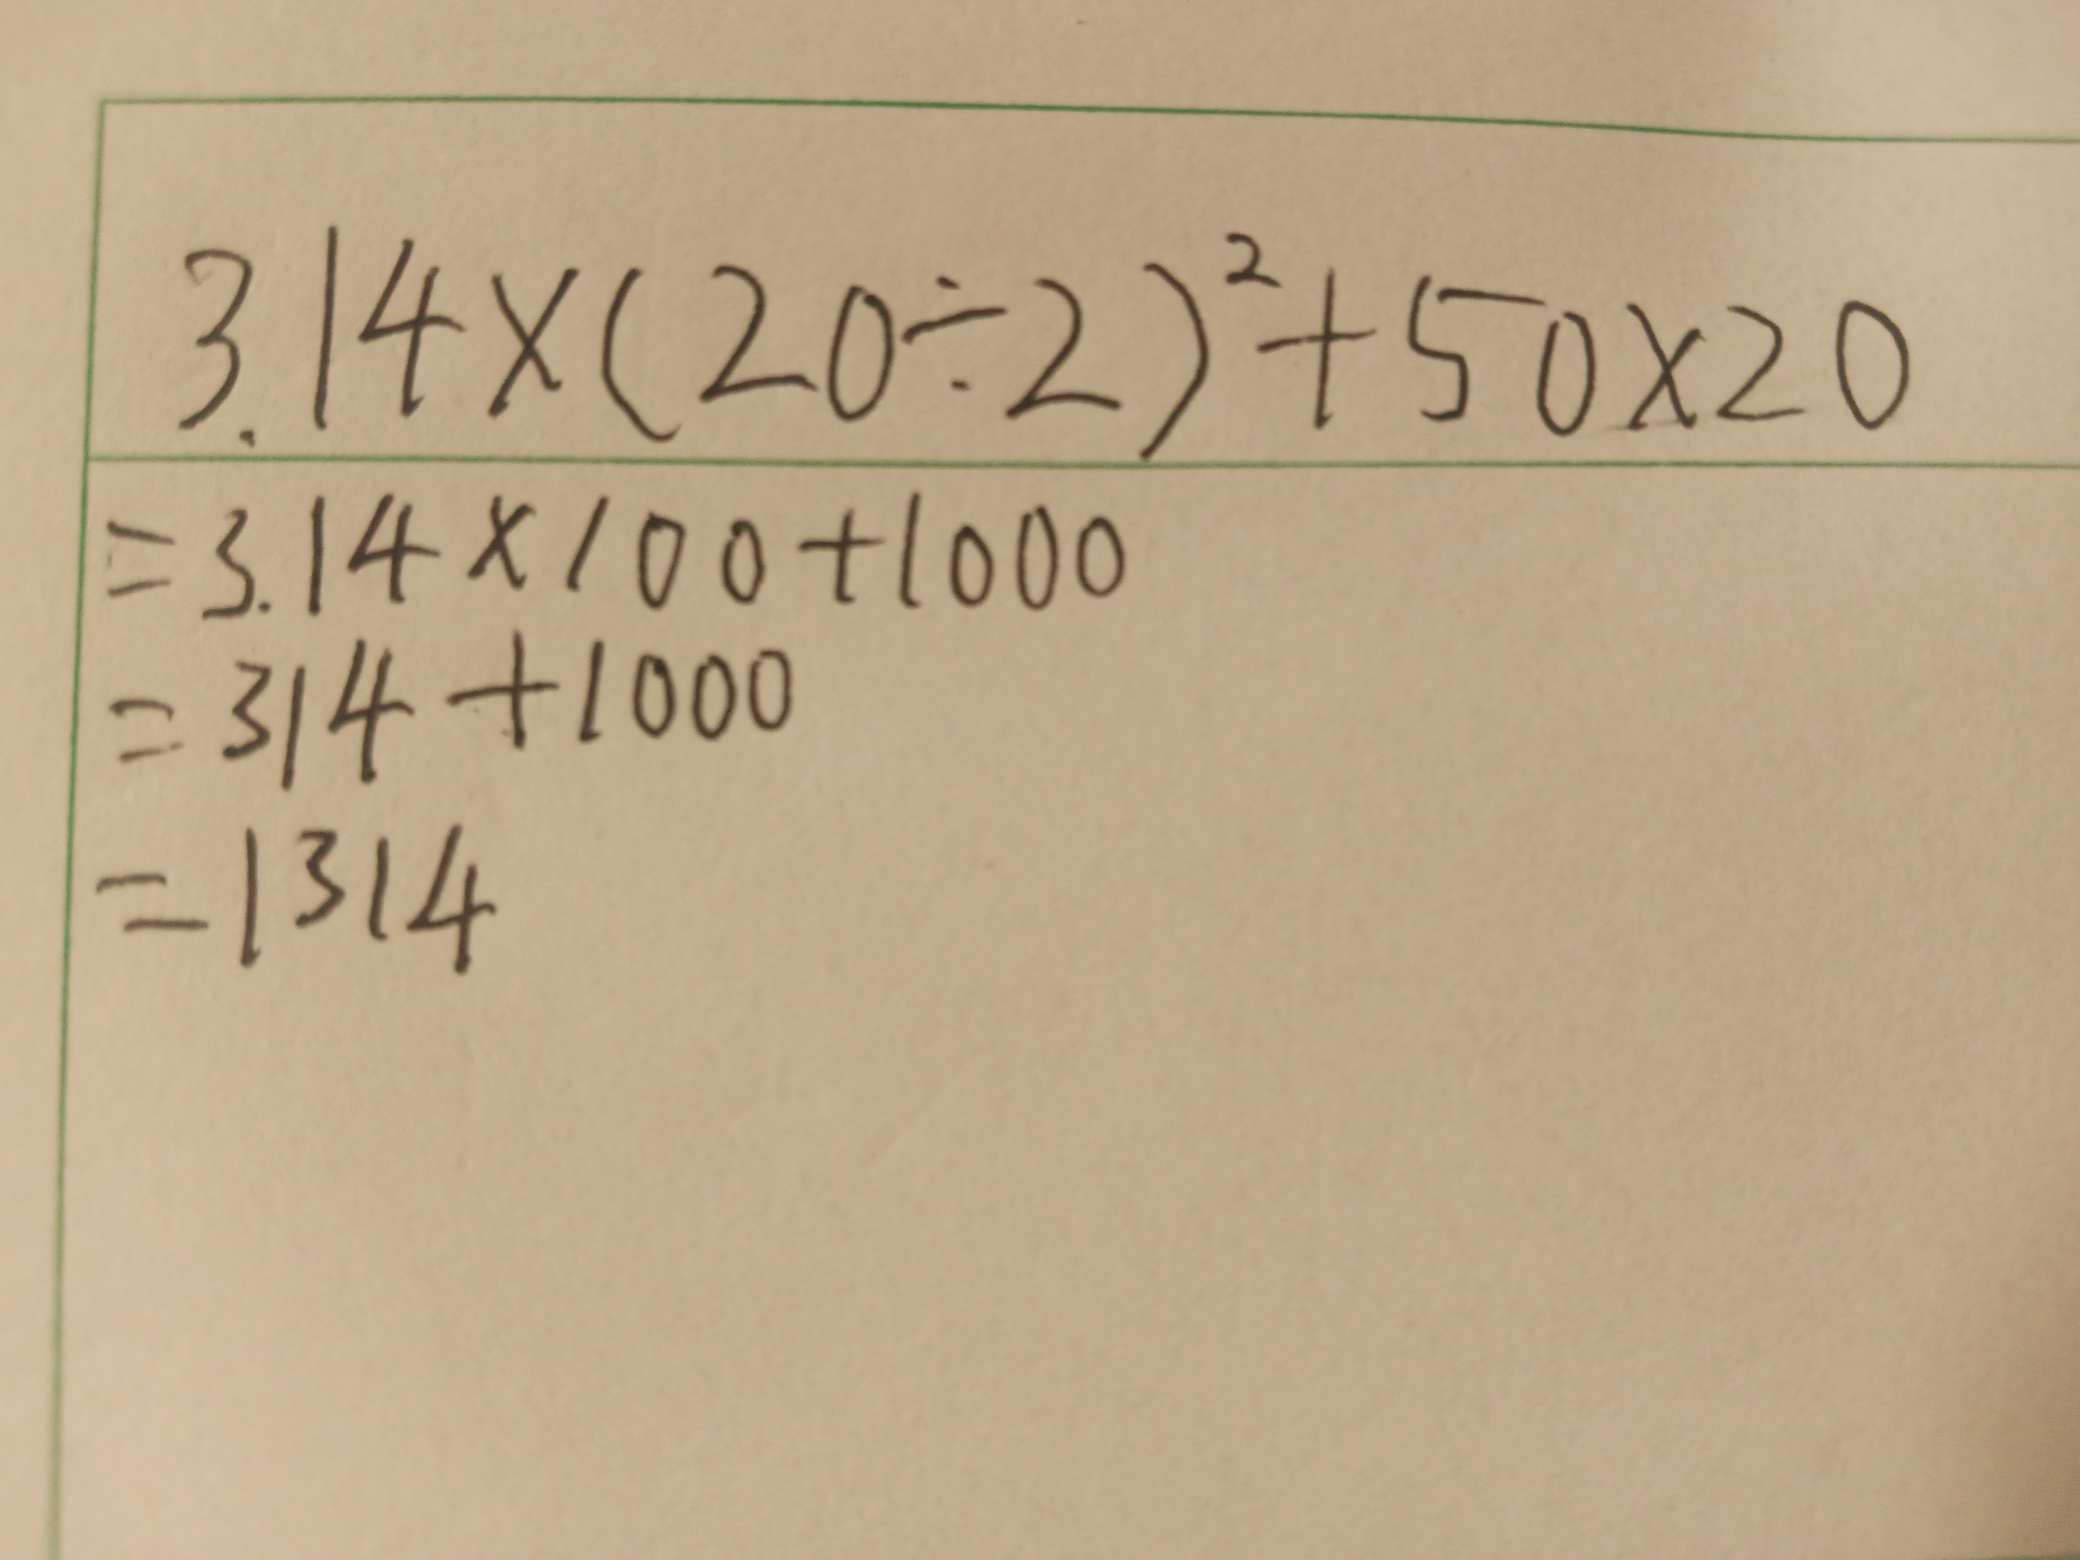 3.14×(20÷2)²+50×20
=3.14×100+1000
=314+1000
=1314